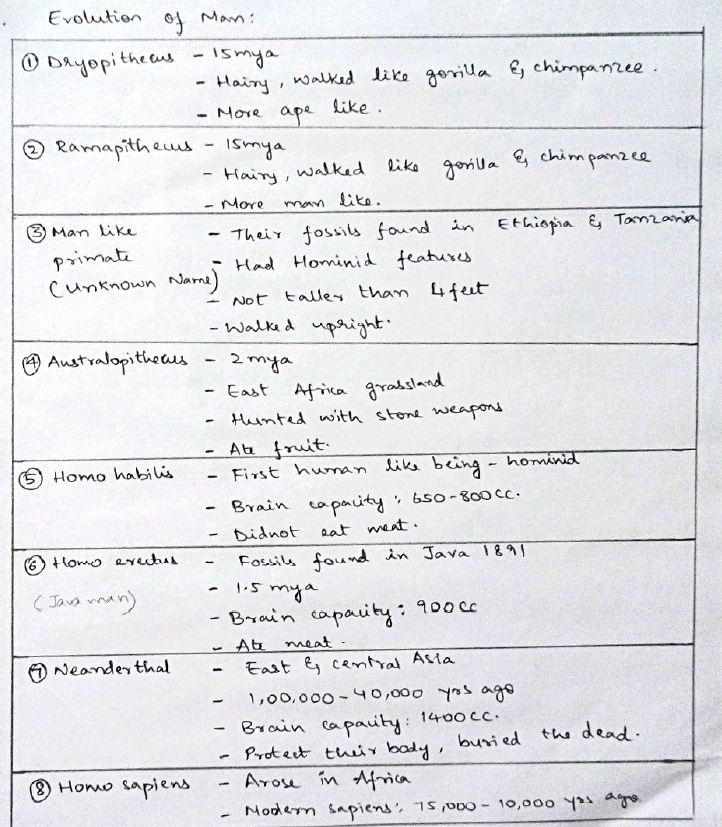 Evolution of Man:
① Dryopithecus - 15mya
- Hairy, walked like gorilla & chimpanzee.
- More ape like.
② Ramapithecus - 15mya
- Hairy, walked like gorilla & chimpanzee
- More man like.
③ Man like - Their fossils found in Ethiopia & Tanzania
primate - Had Hominid features
(Unknown Name) - Not taller than 4 feet
- Walked upright.
④ Australopithecus - 2 mya
- East Africa grassland
- Hunted with stone weapons
- Ate fruit.
⑤ Homo habilis - First human like being - hominid
- Brain capacity: 650-800cc.
- Didnot eat meat.
⑥ Homo erectus - Fossils found in Java 1891
(Java man) - 1.5 mya
- Brain capacity: 900cc
- Ate meat.
⑦ Neanderthal - East & central Asia
- 1,00,000 - 40,000 yrs ago
- Brain capacity: 1400cc.
- Protect their body, buried the dead.
⑧ Homo sapiens - Arose in Africa
- Modern sapiens: 75,000 - 10,000 yrs ago